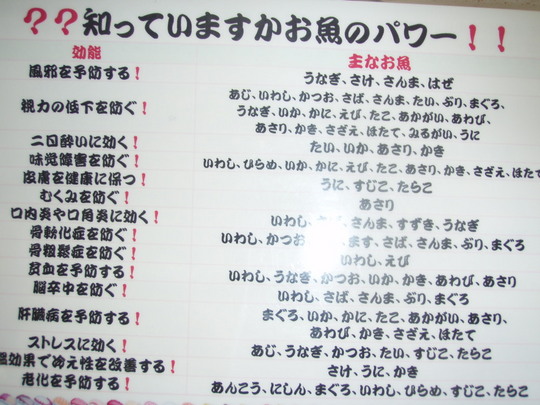 ？？知っていますかお魚のパワー！！
効能 主なお魚
風邪を予防する！ うなぎ、さけ、さんま、はぜ
視力の低下を防ぐ！ あじ、いわし、かつお、さば、さんま、たい、ぶり、まぐろ、
うなぎ、いか、かに、えび、たこ、あかがい、あわび、
あさり、かき、さざえ、ほたて、みるがい、うに
二日酔いに効く！ たい、いか、あさり、かき
味覚障害を防ぐ！ いわし、ひらめ、いか、かに、えび、たこ、あさり、かき、さざえ、ほたて
皮膚を健康に保つ！ うに、すじこ、たらこ
むくみを防ぐ！ あさり
口内炎や口角炎に効く！ いわし、さんま、すずき、うなぎ
骨軟化症を防ぐ！ いわし、かつお、ます、さば、さんま、ぶり、まぐろ
骨粗鬆症を防ぐ！ いわし、えび
貧血を予防する！ いわし、うなぎ、かつお、いか、かき、あわび、あさり
脳卒中を防ぐ！ いわし、さば、さんま、ぶり、まぐろ
肝臓病を予防する！ まぐろ、いか、かに、たこ、あかがい、あさり、
あわび、かき、さざえ、ほたて
ストレスに効く！ あじ、うなぎ、かつお、たい、すじこ、たらこ
温効果で冷え性を改善する！ さけ、うに、かき
老化を予防する！ あんこう、にしん、まぐろ、いわし、ひらめ、すじこ、たらこ